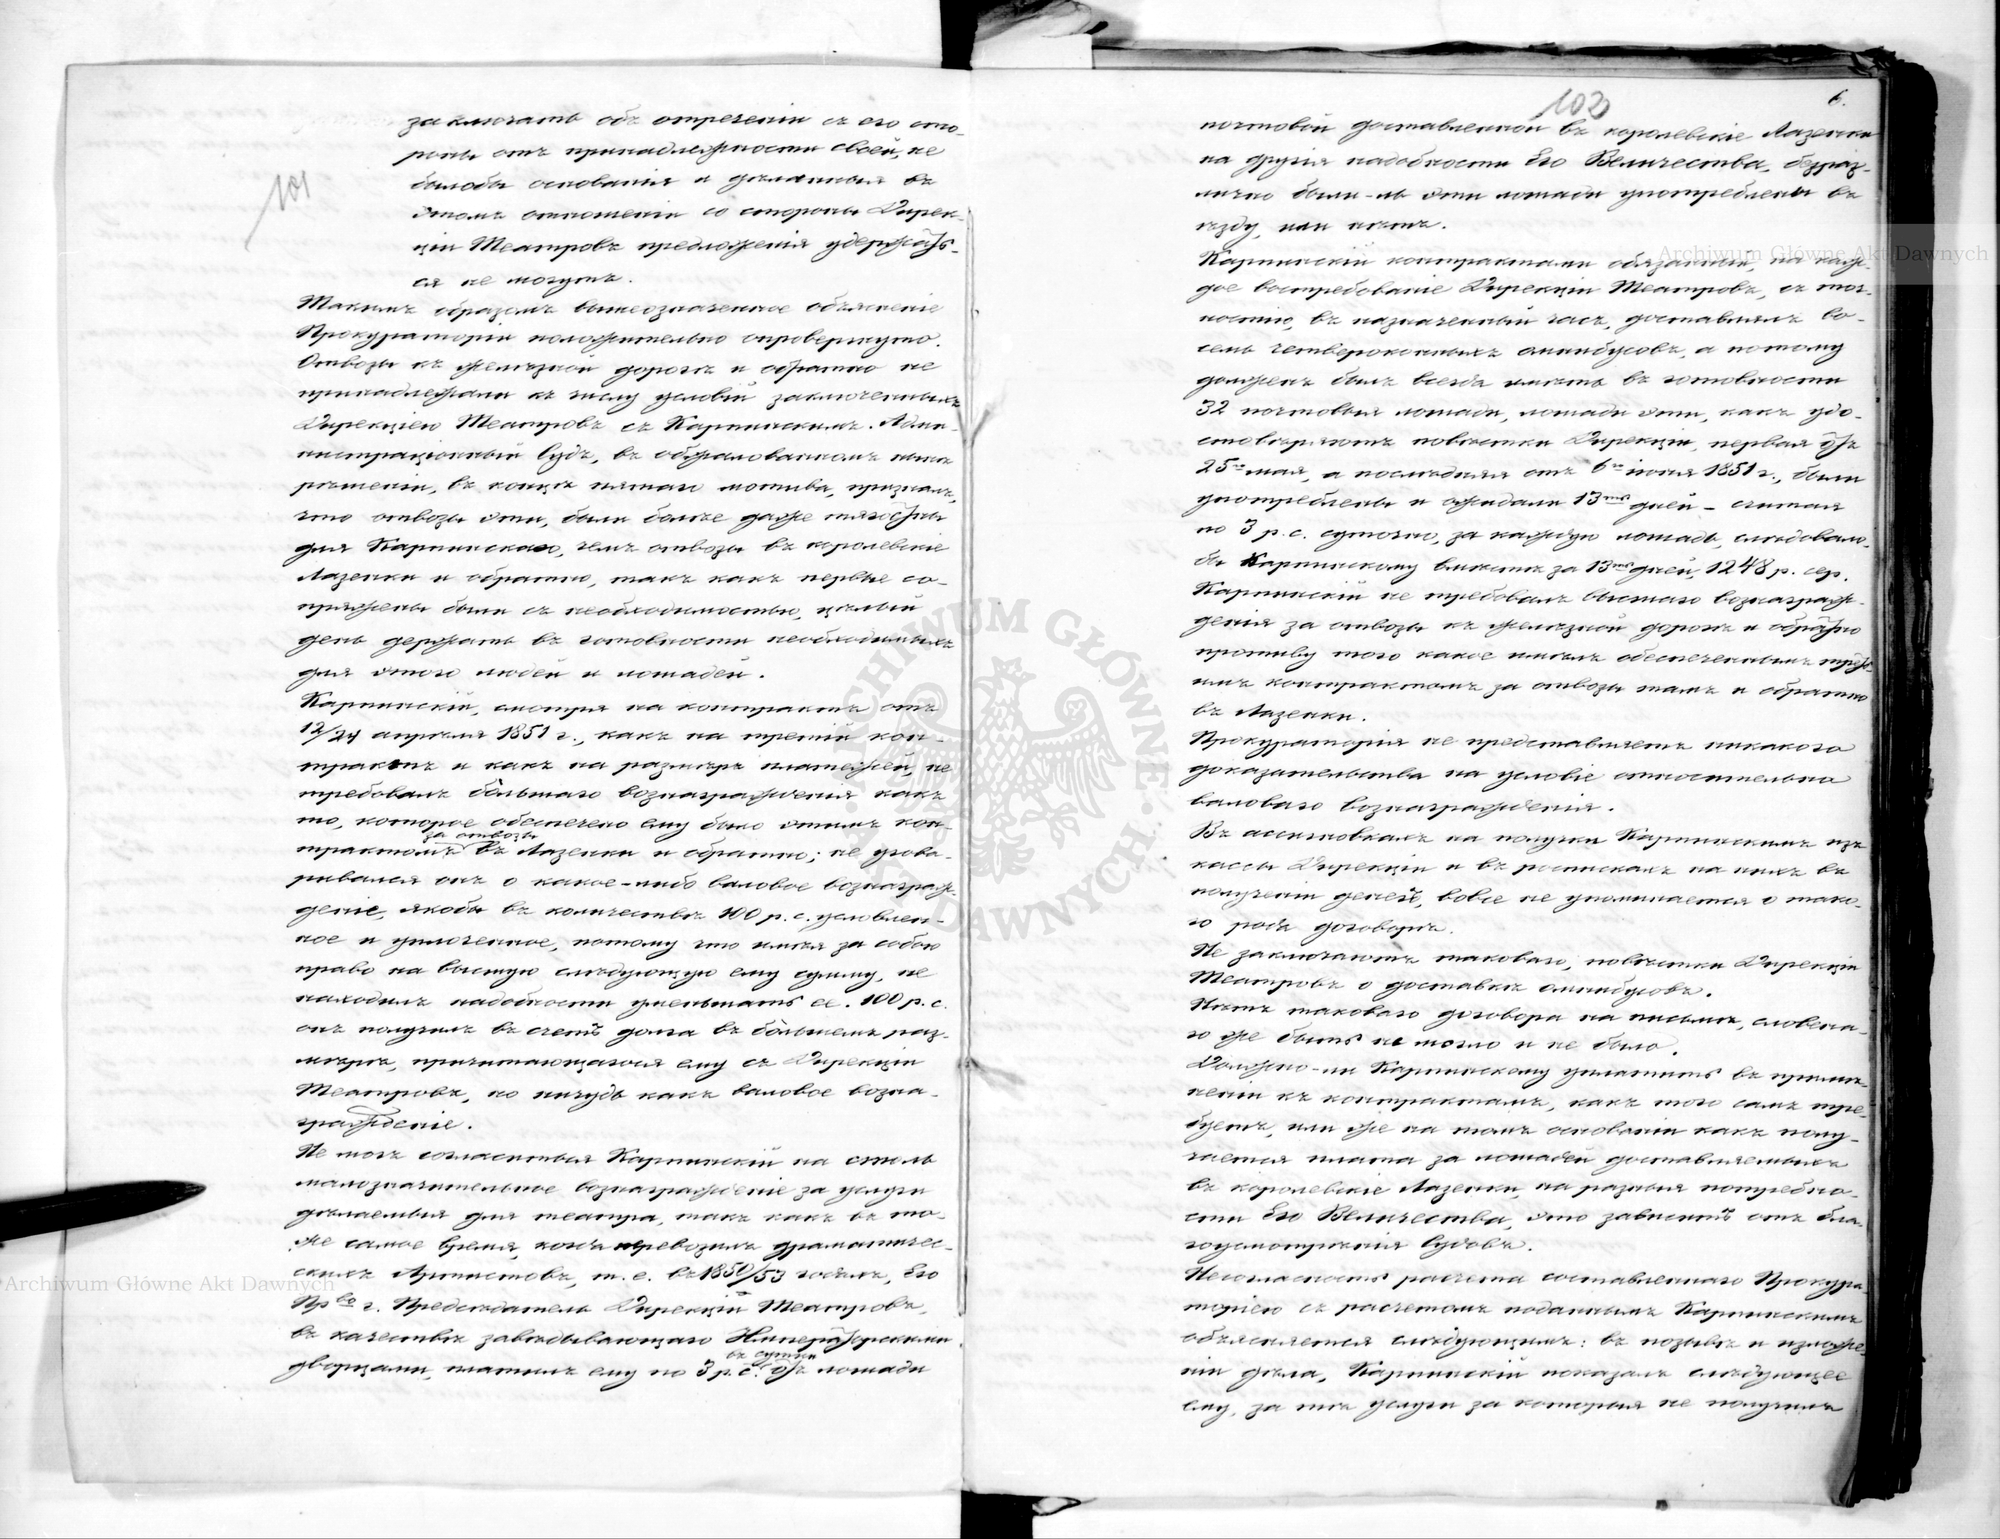 101
заключать объ отреченіи съ его сто-
роны отъ принадлежности своей, не
былобы основанія и деланныя въ
этомъ отношеніи со стороны Дирек-
ціи Театровъ предложенія удержать-
ся не могутъ.
Такимъ образомъ вышеозначенное объясненіе
Прокураторіи положительно опровергнуто.
Отвозы къ желѣзной дорогѣ и обратно не
принадлежали къ числу условій заключенныхъ
Дирекціею Театровъ съ Карпинскимъ. Адми-
нистраціонный Судъ, въ обжалованномъ нынѣ
рѣшеніи, въ концѣ пятаго мотива, призналъ,
что отвозы эти, были болѣе даже тягостны
для Карпинскаго, чемъ отвозы въ королевскіе
Лазенки и обратно, такъ какъ первые со-
пряжены были съ необходимостью, целый
день держать въ готовности необходимыхъ
для этого людей и лошадей.
Карпинскій, смотря на контрактъ отъ
12/24 апрѣля 1851 г., какъ на третій кон-
трактъ и какъ на размѣръ платежей, не
требовалъ большаго вознагражденія какъ
то, которое обеспечено ему было этимъ кон-
трактомъ за отвозы въ Лазенки и обратно; не угова-
ривался онъ о какое-либо валовое вознаграж-
деніе, якобы въ количествѣ 100 р. с. условлен-
ное и уплоченное, потому что имѣя за собою
право на высшую слѣдующую ему сумму, не
находилъ надобности уменьшать ее. 100 р. с.
онъ получилъ въ счетъ долга въ большемъ раз-
мѣрѣ, причитающагося ему съ Дирекціи
Театровъ, но отнюдь какъ валовое возна-
гражденіе.
Не могъ согласиться Карпинскій на столь
малозначительное вознагражденіе за услуги
дѣлаемыя для театра, такъ какъ въ то-
же самое время, когда перевозилъ драматичес-
кихъ Артистовъ, т. е. въ 1850/53 годахъ, Его
Пр<sup>во</sup> г. Предсѣдатель Дирекціи Театровъ,
въ качествѣ завѣдывающаго Императорскими
дворцами, платилъ ему по 3 р. с. въ сутки отъ лошади
103
6.
почтовой доставленной въ королевскіе Лазенки
на другія надобности Его Величества, безраз-
лично были-ль эти лошади употреблены въ
ѣзду, или нѣтъ.
Карпинскій контрактами обязанный, на каж-
дое востребованіе Дирекціи Театровъ, съ точ-
ностію, въ назначенный часъ, доставлялъ во-
семь четвероконныхъ омнибусовъ, а потому
долженъ былъ всегда имѣть въ готовности
32 почтовыя лошади, лошади эти, какъ удо-
стовѣряютъ повѣстки Дирекціи, первая отъ
25<sup>го</sup> мая, а послѣдняя отъ 6<sup>го</sup> іюня 1851 г., были
употреблены и ожидали 13<sup>ть</sup> дней – считая
по 3 р. с. суточно, за каждую лошадь, слѣдовало-
бы Карпинскому вмѣстѣ за 13<sup>ть</sup> дней, 1248 р. сер.
Карпинскій не требовалъ высшаго вознаграж-
денія за отвозы къ желѣзной дорогѣ и обратно
противу того какое имѣлъ обеспеченнымъ треть-
имъ контрактомъ за отвозы тамъ и обратно
въ Лазенки.
Прокураторія не представляетъ никакого
доказательства на условіе относительно
валоваго вознагражденія.
Въ ассигновкахъ на получки Карпинскимъ изъ
кассы Дирекціи и въ роспискахъ на нихъ въ
полученіи денегъ, вовсе не упоминается о тако-
го рода договорѣ.
Не заключаютъ таковаго, повѣстки Дирекціи
Театровъ о доставкѣ омнибусовъ.
Нѣтъ таковаго договора на письмѣ, словесна-
го же быть не могло и не было.
Должно-ли Карпинскому уплатить въ примѣ-
неніи къ контрактамъ, какъ того самъ тре-
буетъ, или же на томъ основаніи какъ полу-
чается плата за лошадей доставляемыхъ
въ королевскіе Лазенки, на разныя потребно-
сти Его Величества, это зависитъ отъ бла-
гоусмотрѣнія Судовъ.
Несогласность расчета составленнаго Прокура-
торіею съ расчетомъ поданнымъ Карпинскимъ
объясняется слѣдующимъ: въ позывѣ и изложе-
ніи дѣла, Карпинскій показалъ слѣдующее
ему, за тѣ услуги за которыя не получилъ
Archiwum Główne Akt Dawnych
Archiwum Główne Akt Dawnych
ARCHIWUM GŁÓWNE AKT DAWNYCH